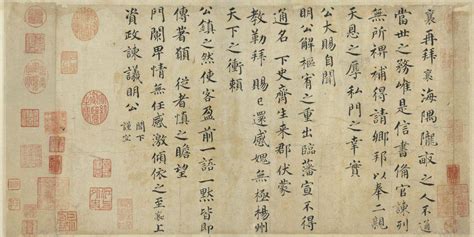 襄再拜襄海隅隴畝之人不通
當世之務唯是信書備官諫列
無所裨補得請鄉邦以奉二親
天恩之厚私門之幸實
公大賜自聞
明公解樞宥之重出臨藩宣不得
通名下史齊生來郡伏蒙
教勒賜已還感愧無極楊州
天下之衝賴
公鎮之然使客盈前一語一默皆即
傳著願從者慎之瞻望
門闌卑情無任感激傾依之至襄上
資政諫議明公閣下
謹空